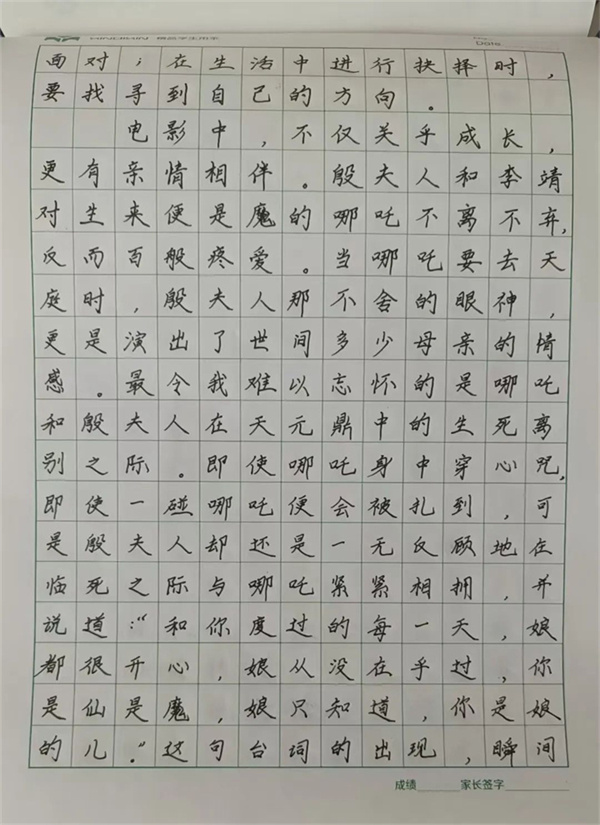 Date
面对；在生活中进行抉择时，
要找寻到自己的方向。
电影中，不仅关乎成长，
更有亲情相伴。殷夫人和李靖
对生来便是魔的哪吒不离不弃，
反而百般疼爱。当哪吒要去天
庭时，殷夫人那不舍的眼神，
更是演出了世间多少母亲的情
感。最令我难以忘怀的是哪吒
和殷夫人在天元鼎中的生死离
别之际。即使哪吒身中穿心咒，
即使一碰哪吒便会被扎到，可
是殷夫人却还是一无反顾地在
临死之际与哪吒紧紧相拥，并
说道：“和你度过的每一天，娘
都很开心，娘从没在乎过，你
是仙是魔，娘只知道，你是娘
的儿。”这句台词的出现，瞬间
成绩______家长签字__________